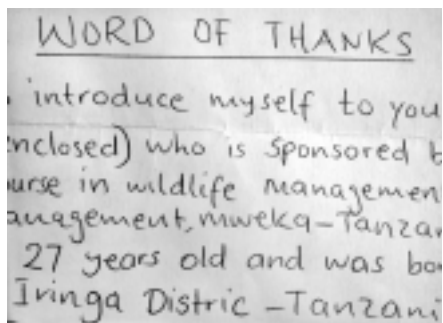 WORD OF THANKS
introduce myself to you
enclosed) who is sponsored b
urse in wildlife managemen
anagement, mweka-Tanzan
27 years old and was bo
Iringa Distric - Tanzani